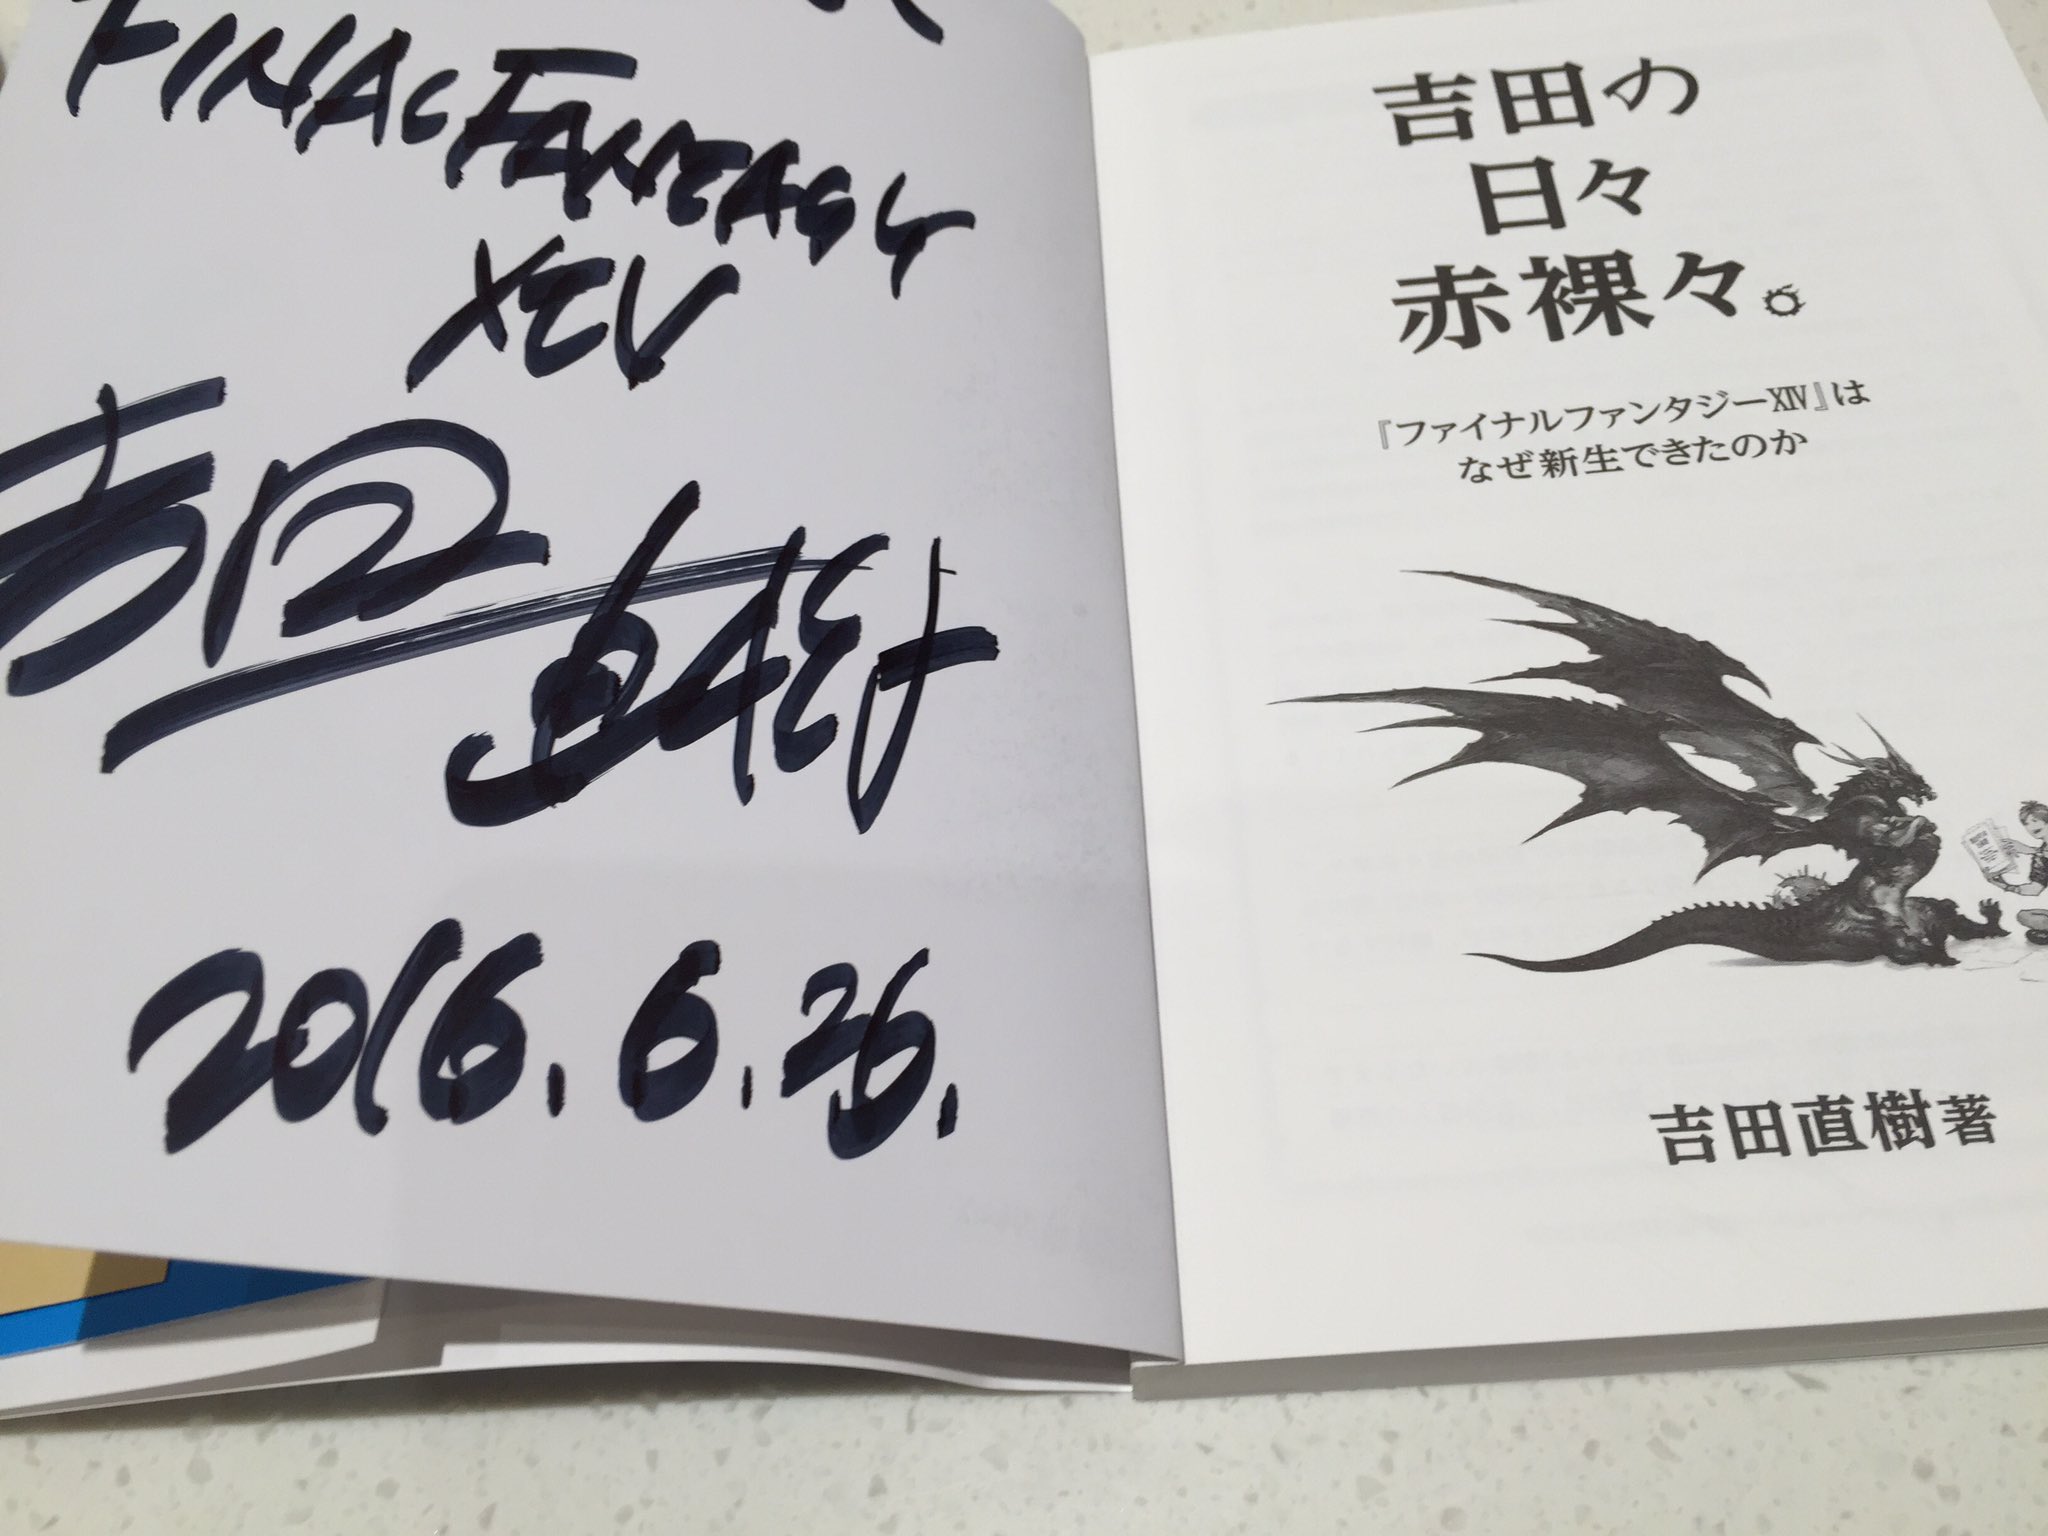 FINAL FANTASY
XIV
吉田
直樹
2016.6.26.
吉田の
日々
赤裸々。
『ファイナルファンタジーXIV』は
なぜ新生できたのか
吉田直樹著